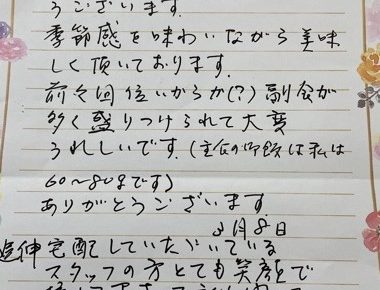 うございます。
季節感を味わいながら美味
しく頂いております。
前々回位いからか(?)副食が
多く盛りつけられて大変
うれしいです。(主食の御飯は私は
60〜80gです)
ありがとうございます。
3月8日
追伸宅配していただいている
スタッフの方とても笑顔で